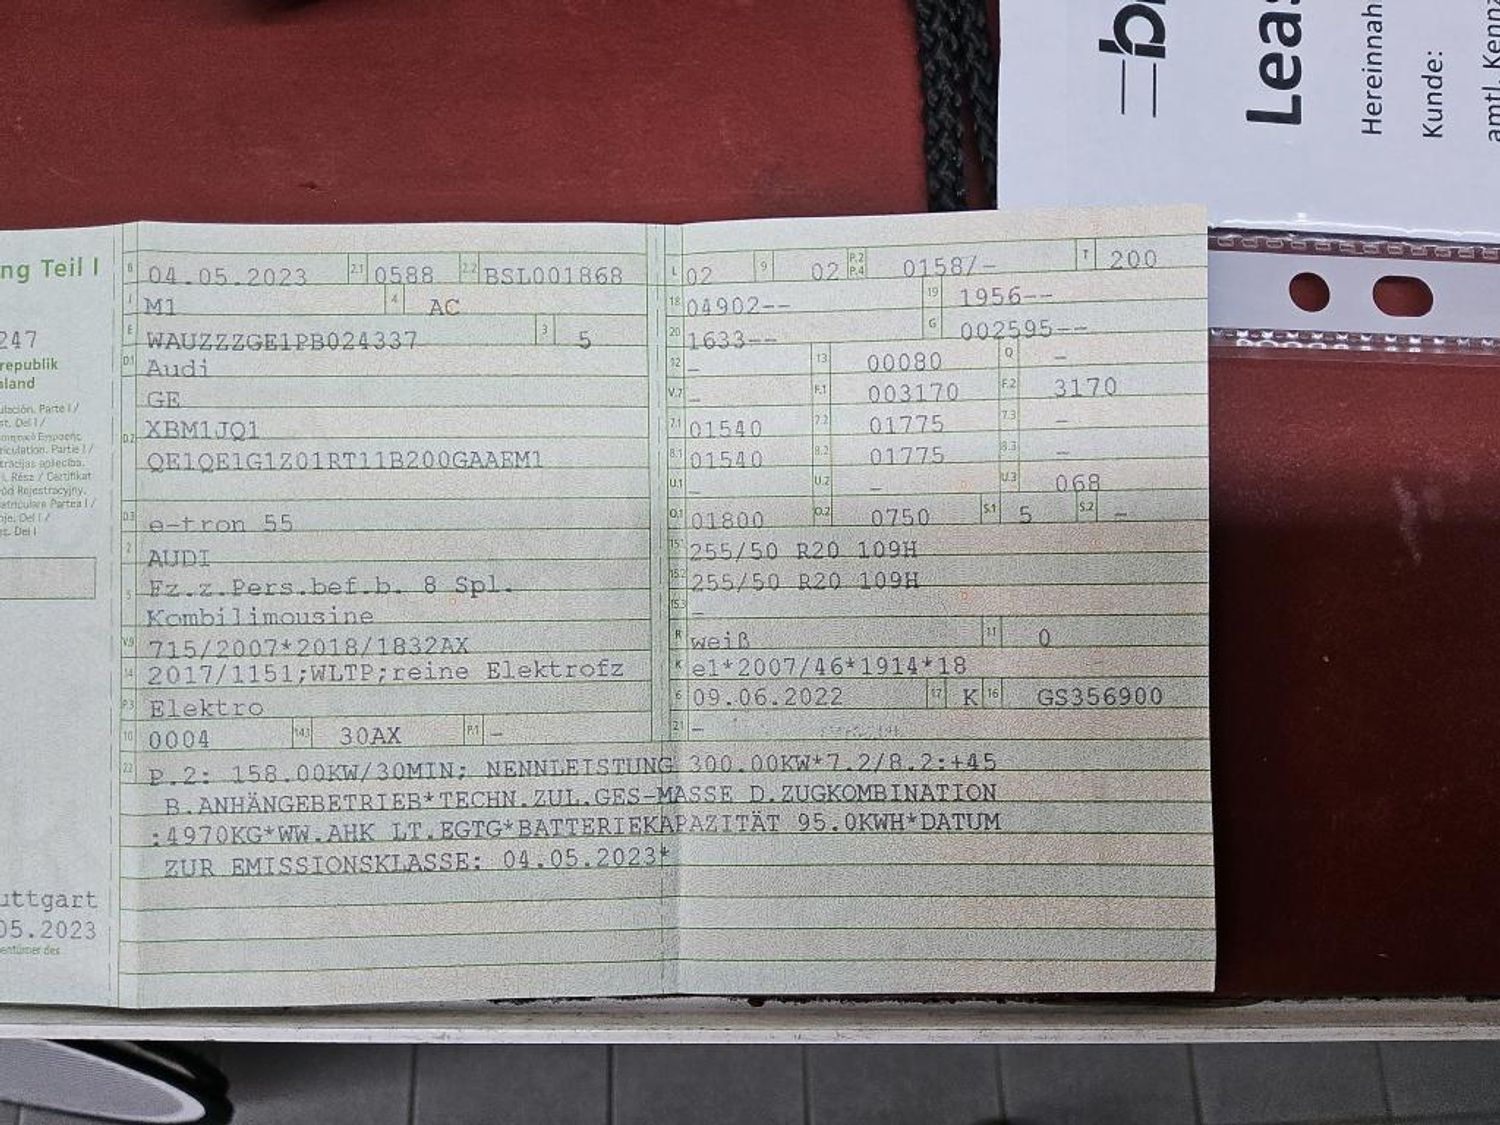 ng Teil I
247
republik
land
uttgart
05.2023
B 04.05.2023 2.1 0588 2.2 BSL001868
J M1 4 AC
E WAUZZZGE1PB024337 3 5
D.1 Audi
GE
D.2 XBM1JQ1
QE1QE1G1Z01RT11B200GAAEM1
D.3 e-tron 55
2 AUDI
5 Fz.z.Pers.bef.b. 8 Spl.
Kombilimousine
V.9 715/2007*2018/1832AX
14 2017/1151;WLTP;reine Elektrofz
P.3 Elektro
10 0004 14.1 30AX P.1 -
L 02 9 02 P.2 P.4 0158/- T 200
18 04902-- 19 1956--
20 1633-- G 002595--
12 - 13 00080 Q -
V.7 - F.1 003170 F.2 3170
7.1 01540 7.2 01775 7.3 -
8.1 01540 8.2 01775 8.3 -
U.1 - U.2 - U.3 068
O.1 01800 O.2 0750 S.1 5 S.2 -
15.1 255/50 R20 109H
15.2 255/50 R20 109H
15.3 -
R weiß 11 0
K e1*2007/46*1914*18
6 09.06.2022 17 K 16 GS356900
21 -
22 P.2: 158.00KW/30MIN; NENNLEISTUNG 300.00KW*7.2/8.2:+45
B.ANHÄNGEBETRIEB*TECHN.ZUL.GES-MASSE D.ZUGKOMBINATION
:4970KG*WW.AHK LT.EGTG*BATTERIEKAPAZITÄT 95.0KWH*DATUM
ZUR EMISSIONSKLASSE: 04.05.2023*
Leas
Hereinnah
Kunde:
amtl. Kennz